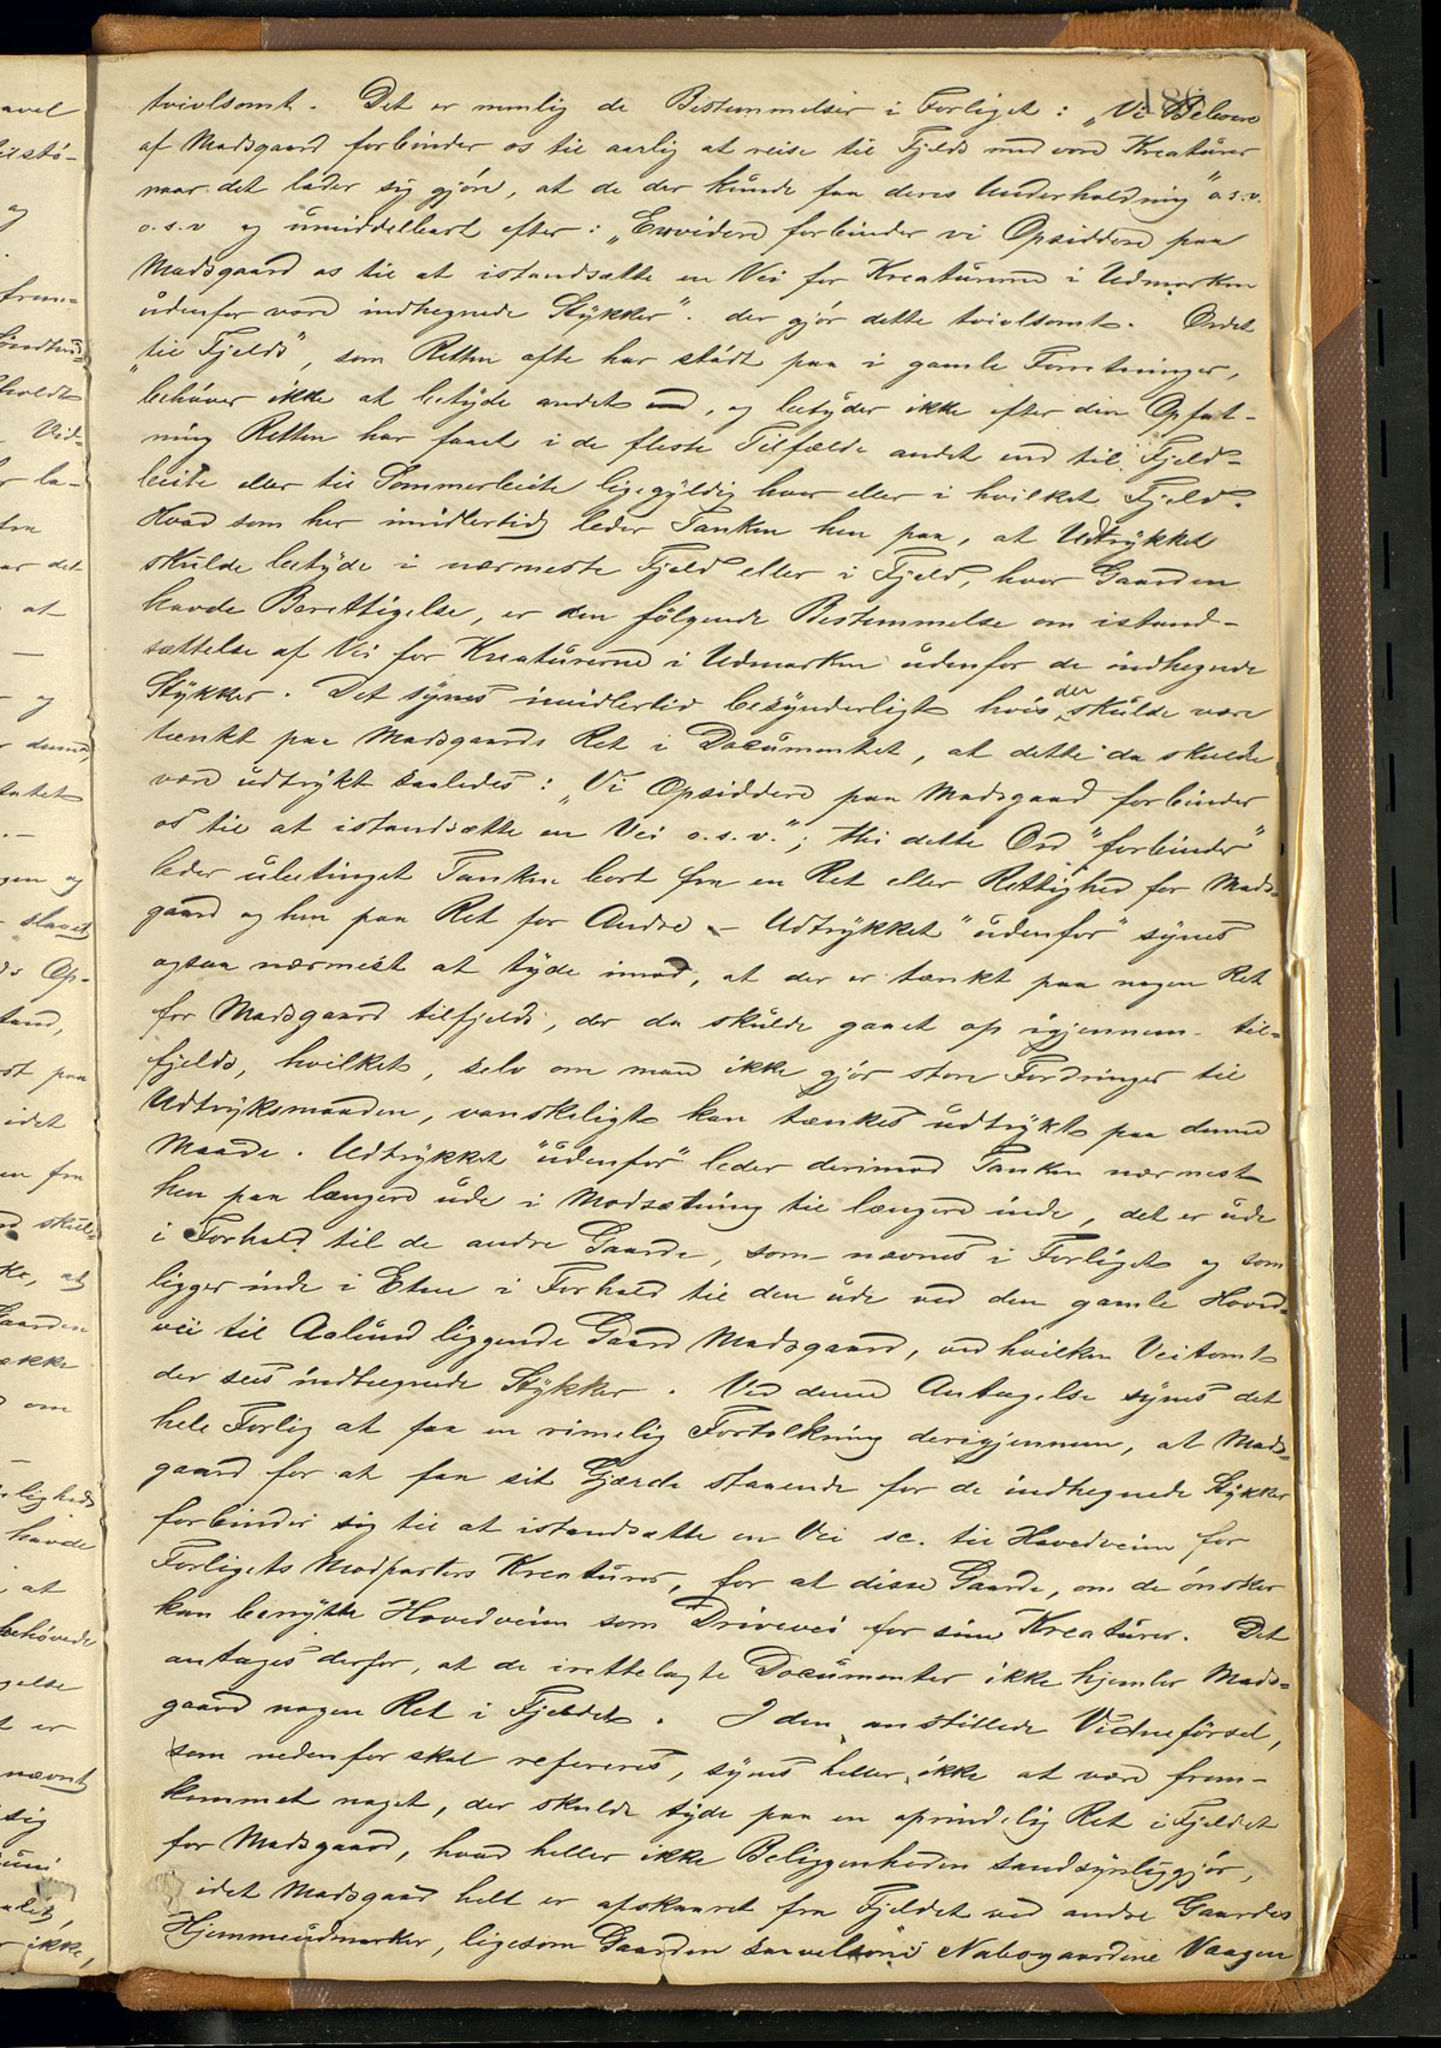 186
tvivlsomt. Det er nemlig de Bestemmelser i Forliget: „Vi Beboere
af Madsgaard forbinder os til aarlig at reise til Fjelds med vore Kreaturer
naar det lader sig gjøre, at de der kunde faa deres Underholdning" o.s.v.
o.s.v og umiddelbart efter: „Envidere forbinder vi Opsiddere paa
Madsgaard os til at istandsætte en Vei for Kreaturerne i Udmarken
udenfor vore indhegnede Stykker". der gjør dette tvivlsomt. Ordet
„til Fjelds", som Retten ofte har stødt paa i gamle Forretninger,
behøver ikke at betyde andet end, og betyder ikke efter den Opfat-
ning Retten har faaet i de fleste Tilfælde andet end til Fjeld-
beite eller til Sommerbeite ligegyldig hvor eller i hvilket Fjeld.
Hvad som her imidlertid leder Tanken hen paa, at Udtrykket
skulde betyde i nærmeste Fjeld eller i Fjeld, hvor Gaarden
havde Berettigelse, er den følgende Bestemmelse om istand-
sættelse af Vei for Kreaturerne i Udmarken udenfor de indhegnede
Stykker. Det synes imidlertid besynderligt hvis der skulde være
tænkt paa Madsgaards Ret i Documentet, at dette da skulde
være udtrykt saaledes: „Vi Opsiddere paa Madsgaard forbinder
os til at istandsætte en Vei o.s.v."; thi dette Ord "forbinder"
leder ubetinget Tanken bort fra en Ret eller Rettighed for Mads-
gaard og hen paa Ret for Andre – Udtrykket "udenfor" synes
ogsaa nærmest at tyde imod, at der er tænkt paa nogen Ret
for Madsgaard tilfjelds, der da skulde gaaet op igjennem til-
fjelds, hvilket, selv om man ikke gjør store Fordringer til
Udtryksmaaden, vanskeligt kan tænkes udtrykt paa denne
Maade. Udtrykket "udenfor" leder derimod Tanken nærmest
hen paa længere ude i Modsætning til længere inde, det er ude
i Forhold til de andre Gaarde, som nævnes i Forliget og som
ligger inde i Etne i Forhold til den ude ved den gamle Hoved-
vei til Aalund liggende Gaard Madsgaard, ved hvilken Veitomt
der sees indhegnede Stykker. Ved denne Antagelse synes det
hele Forlig at faa en rimelig Fortolkning derigjennem, at Mads-
gaard for at faa sit Gjærde staaende for de indhegnede Stykker
forbinder sig til at istandsætte en Vei sc. til Hovedveien for
Forligets Modparters Kreaturer, for at disse Gaarde, om de ønsker
kan benytte Hovedveien som Drivevei for sine Kreaturer. Det
antages derfor, at de irettelagte Documenter ikke hjemler Mads-
gaard nogen Ret i Fjeldet. I den anstillede Vidneførsel,
som nedenfor skal refereres, synes heller ikke at være frem-
kommet noget, der skulde tyde paa en oprindelig Ret i Fjeldet
for Madsgaard, hvad heller ikke Beliggenheden sandsynliggjør,
idet Madsgaard helt er afskaaret fra Fjeldet ved andre Gaardes
Hjemmeudmarker, ligesom Gaarden saavelsom Nabogaardene Vaagen